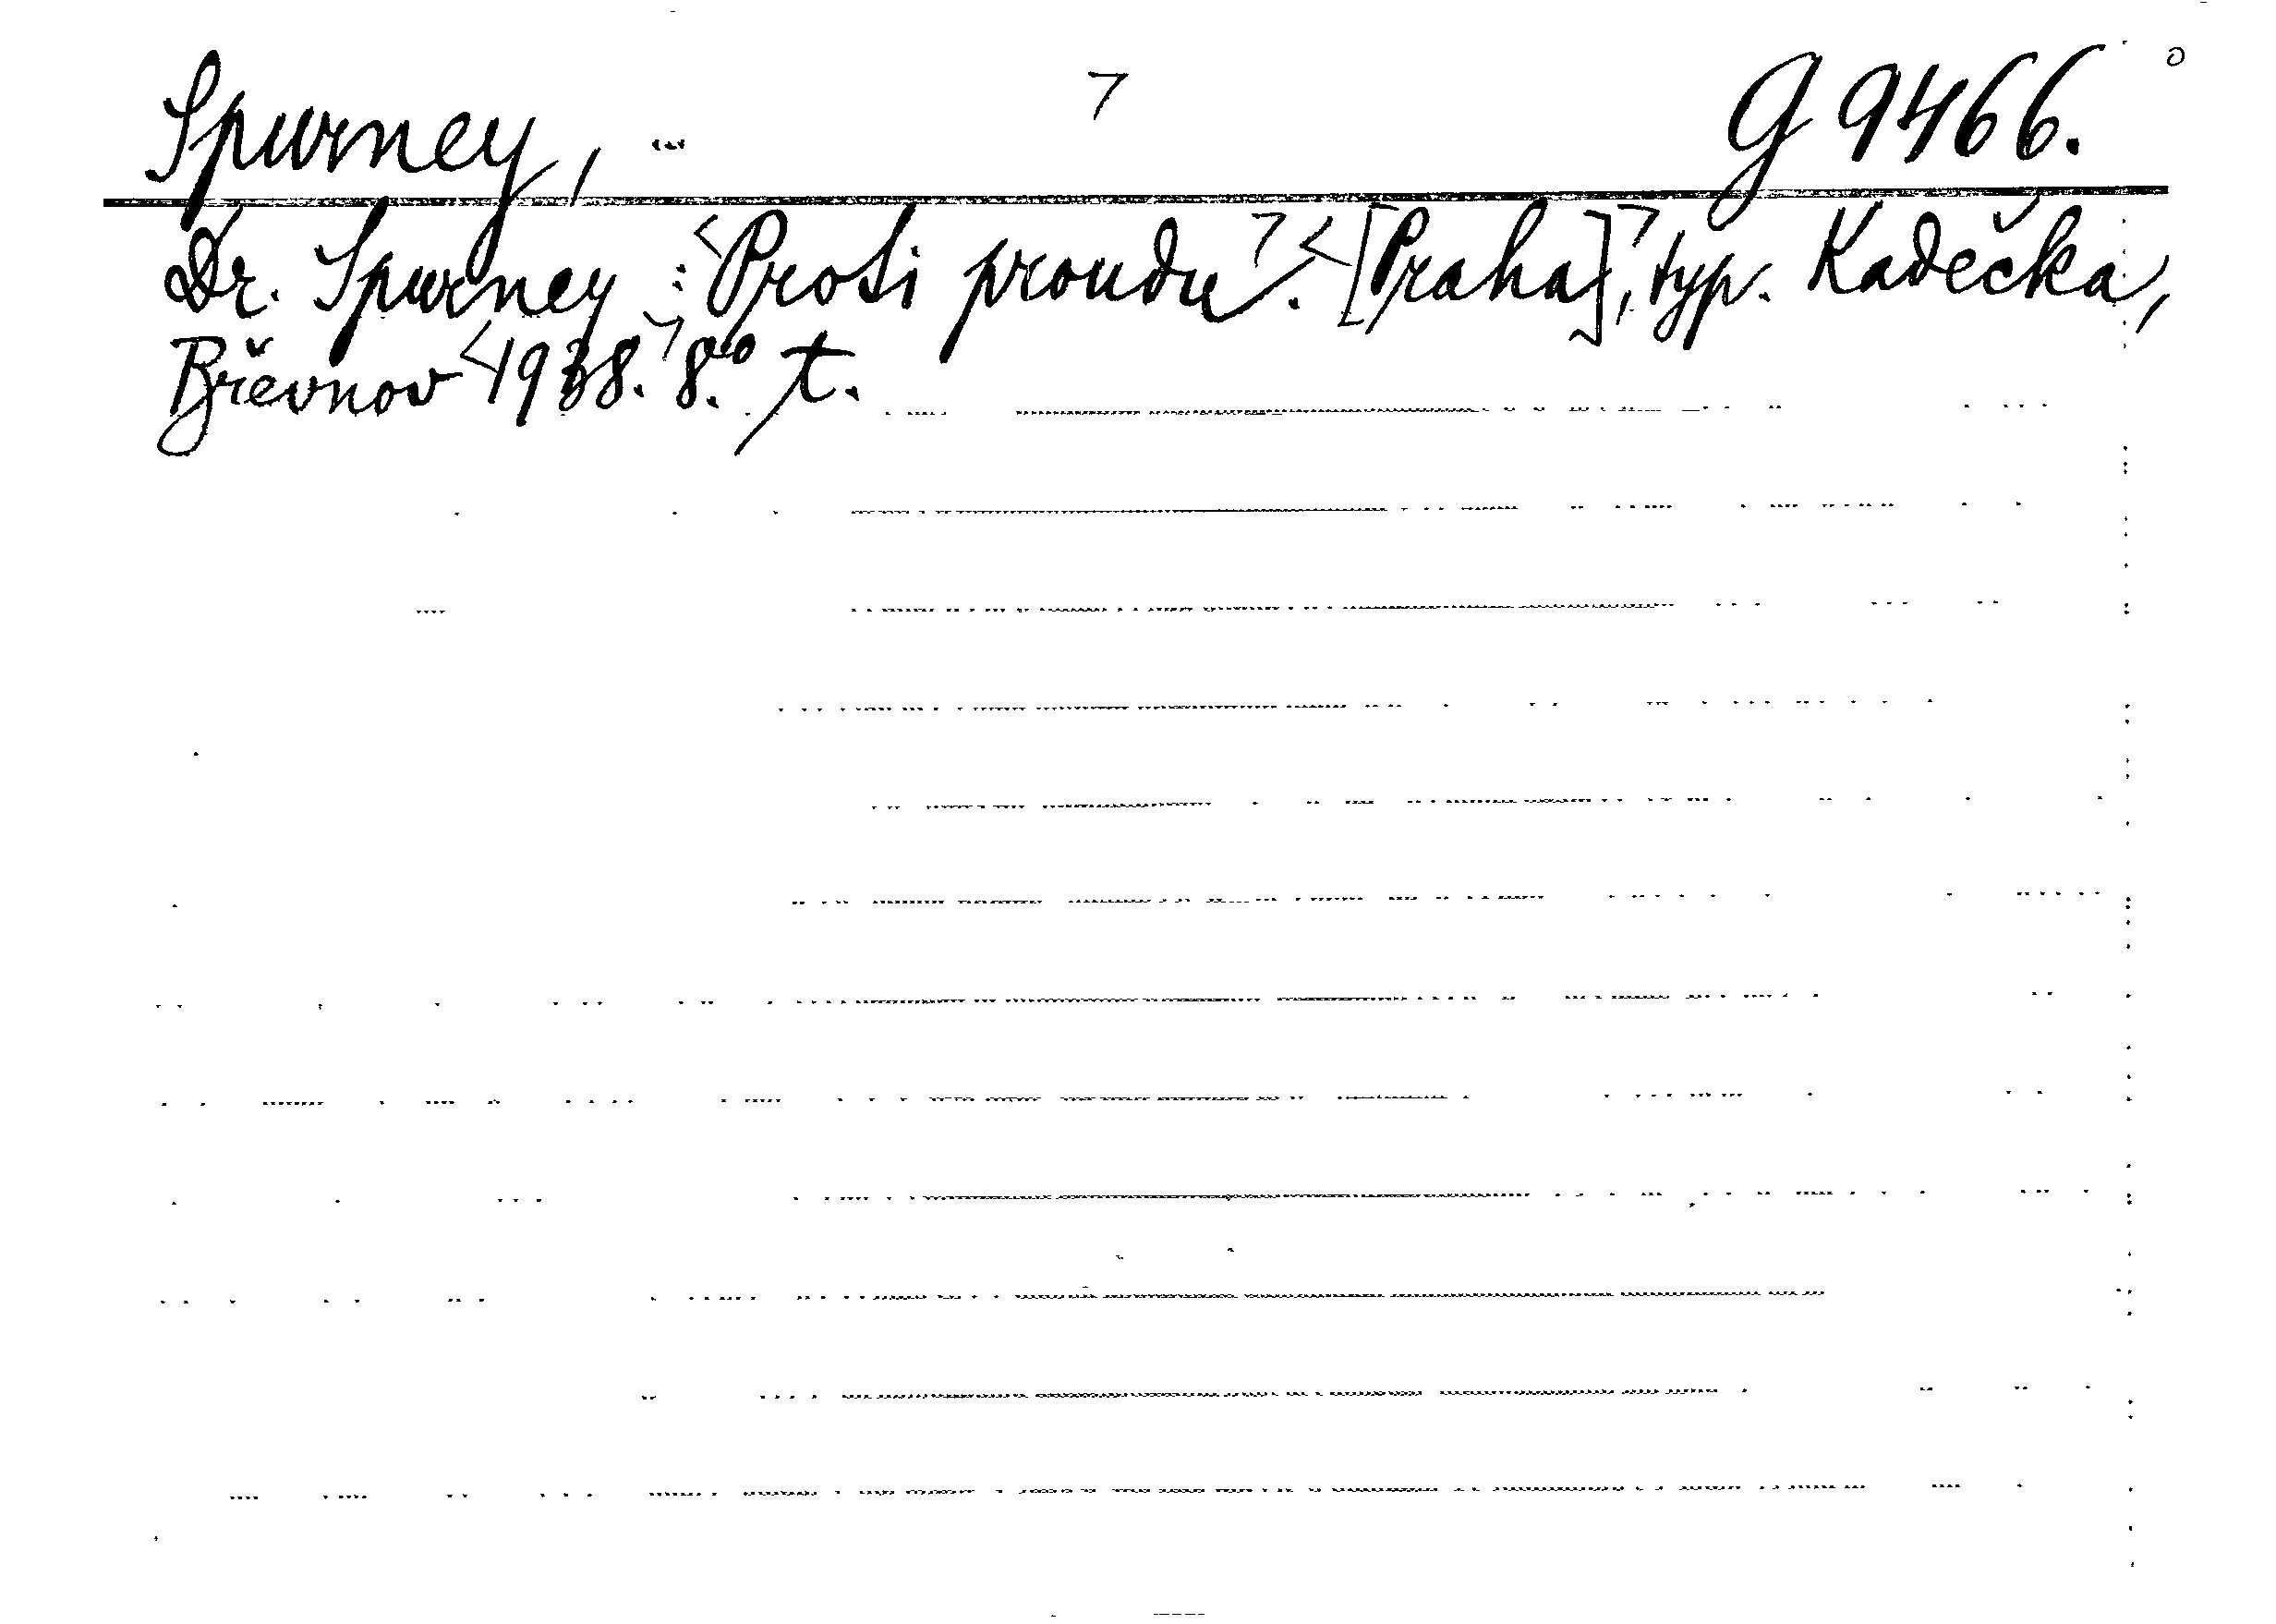 Spurney, ... > G 9466.
Dr. Spurney : <Proti proudu>. <[Praha]>, typ. Kadečka,
Břevnov <1938.> 8.° t.